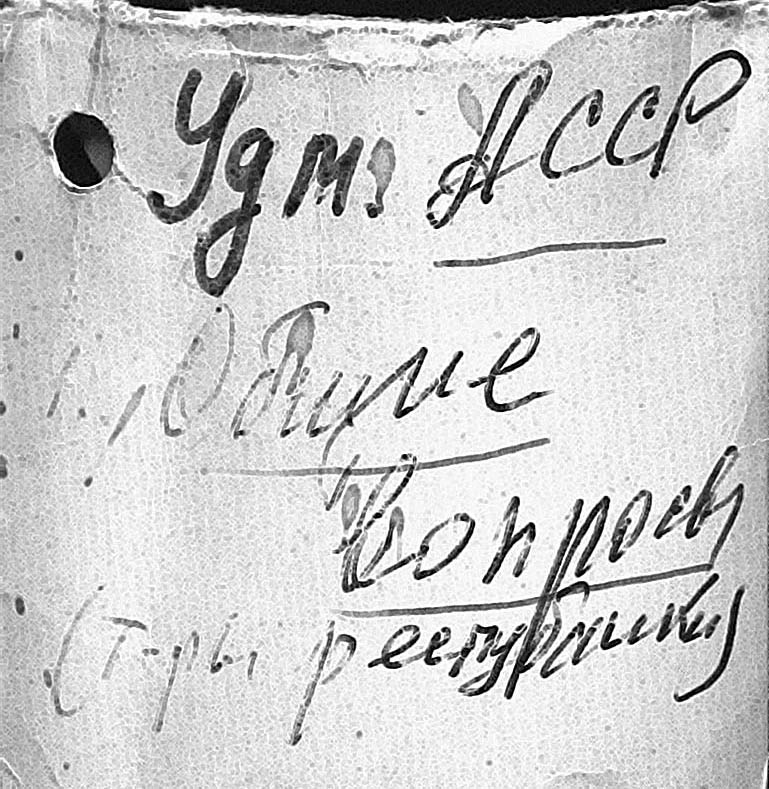 Удм. АССР
Общие
вопросы
(т-ры республики)